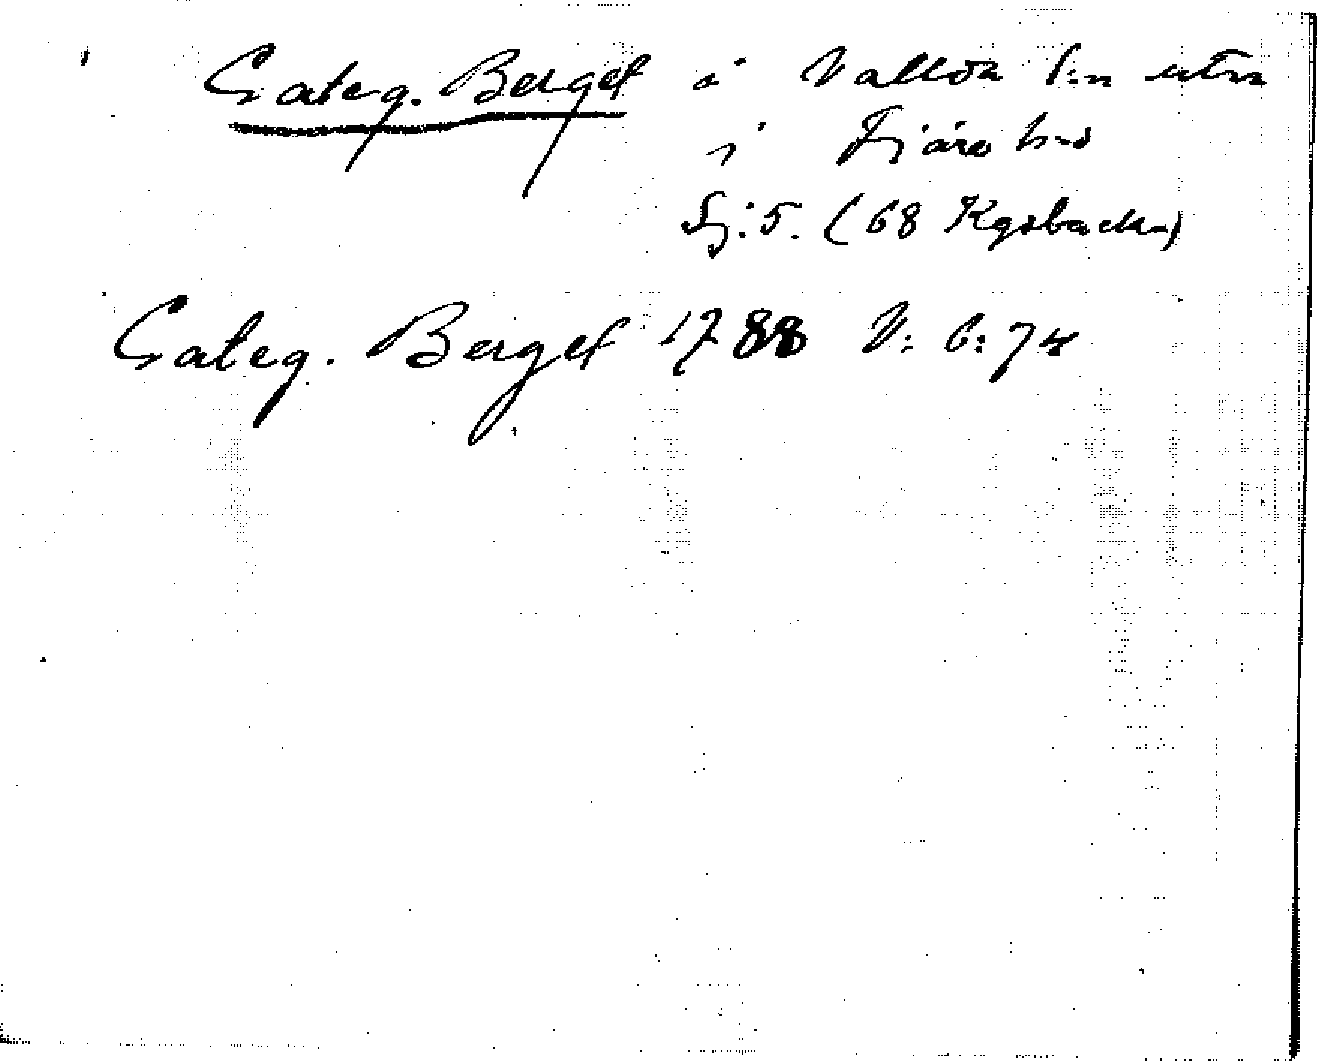 Galeg. Berget å Vallda s:n utm
i Fjäre h-d
Sj:5. (68 Kgsbacka)
Galeg. Berget 1788 V: 6:74